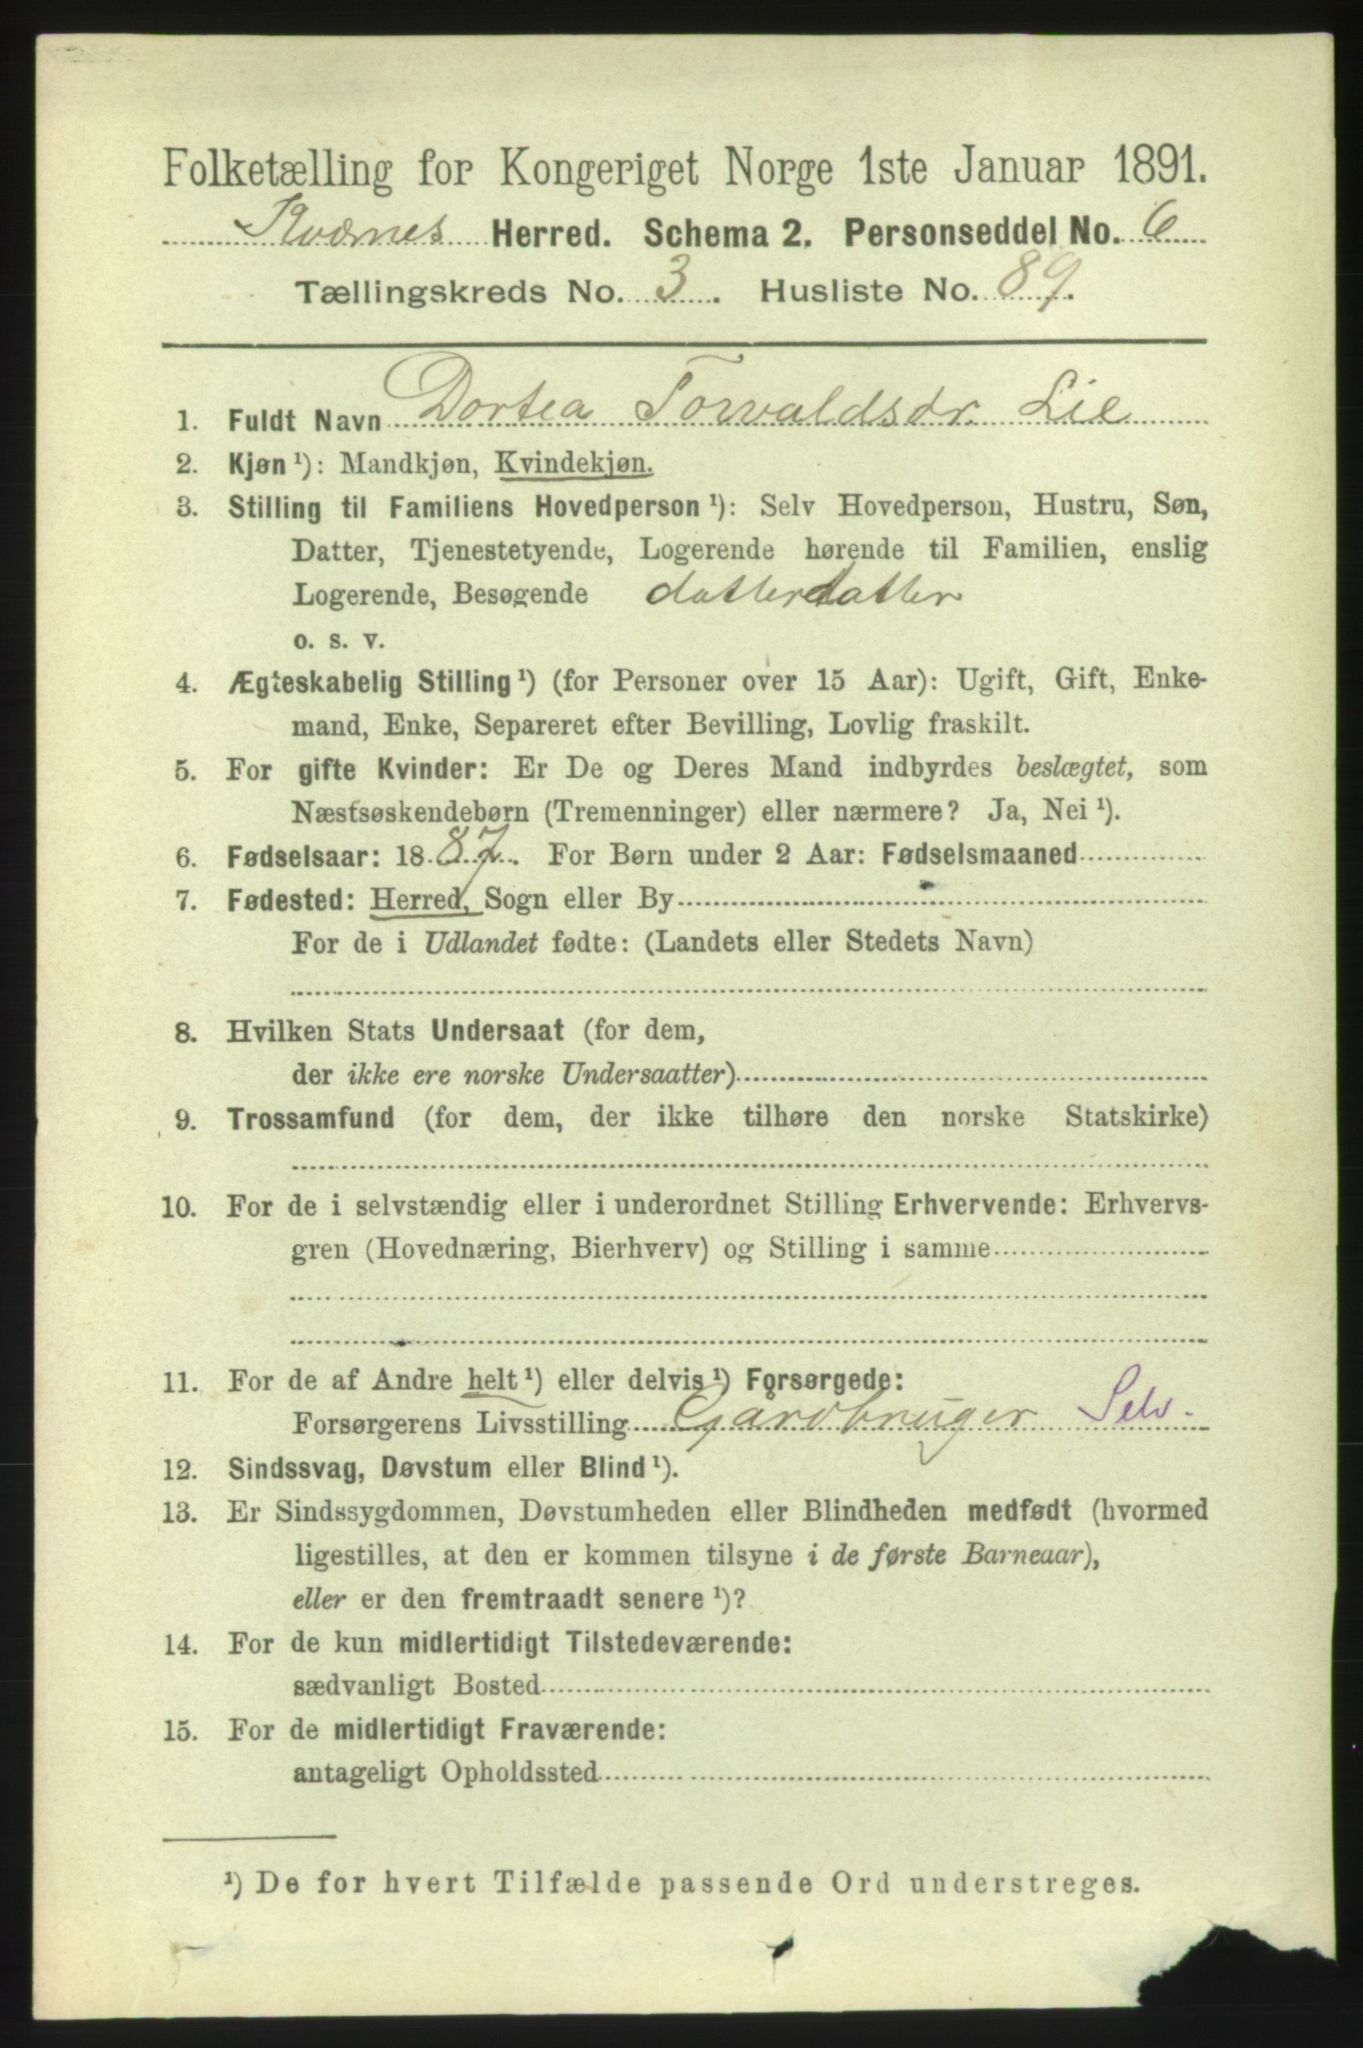 Folketælling for Kongeriget Norge 1ste Januar 1891.
Kværnes Herred. Schema 2. Personseddel No. 6
Tællingskreds No. 3. Husliste No. 89.
1. Fuldt Navn Dortea Torvaldsdr. Lie
2. Kjøn¹): Mandkjøn, Kvindekjøn.
3. Stilling til Familiens Hovedperson¹): Selv Hovedperson, Hustru, Søn,
Datter, Tjenestetyende, Logerende hørende til Familien, enslig
Logerende, Besøgende datterdatter
o. s. v.
4. Ægteskabelig Stilling¹) (for Personer over 15 Aar): Ugift, Gift, Enke-
mand, Enke, Separeret efter Bevilling, Lovlig fraskilt.
5. For gifte Kvinder: Er De og Deres Mand indbyrdes beslægtet, som
Næstsøskendebørn (Tremenninger) eller nærmere? Ja, Nei¹).
6. Fødselsaar: 1887. For Børn under 2 Aar: Fødselsmaaned
7. Fødested: Herred, Sogn eller By
For de i Udlandet fødte: (Landets eller Stedets Navn)
8. Hvilken Stats Undersaat (for dem,
der ikke ere norske Undersaatter)
9. Trossamfund (for dem, der ikke tilhøre den norske Statskirke)
10. For de i selvstændig eller i underordnet Stilling Erhvervende: Erhvervs-
gren (Hovednæring, Bierhverv) og Stilling i samme
11. For de af Andre helt¹) eller delvis¹) Forsørgede:
Forsørgerens Livsstilling Gårdbruger Selv.
12. Sindssvag, Døvstum eller Blind¹).
13. Er Sindssygdommen, Døvstumheden eller Blindheden medfødt (hvormed
ligestilles, at den er kommen tilsyne i de første Barneaar),
eller er den fremtraadt senere¹)?
14. For de kun midlertidigt Tilstedeværende:
sædvanligt Bosted
15. For de midlertidigt Fraværende:
antageligt Opholdssted
¹) De for hvert Tilfælde passende Ord understreges.